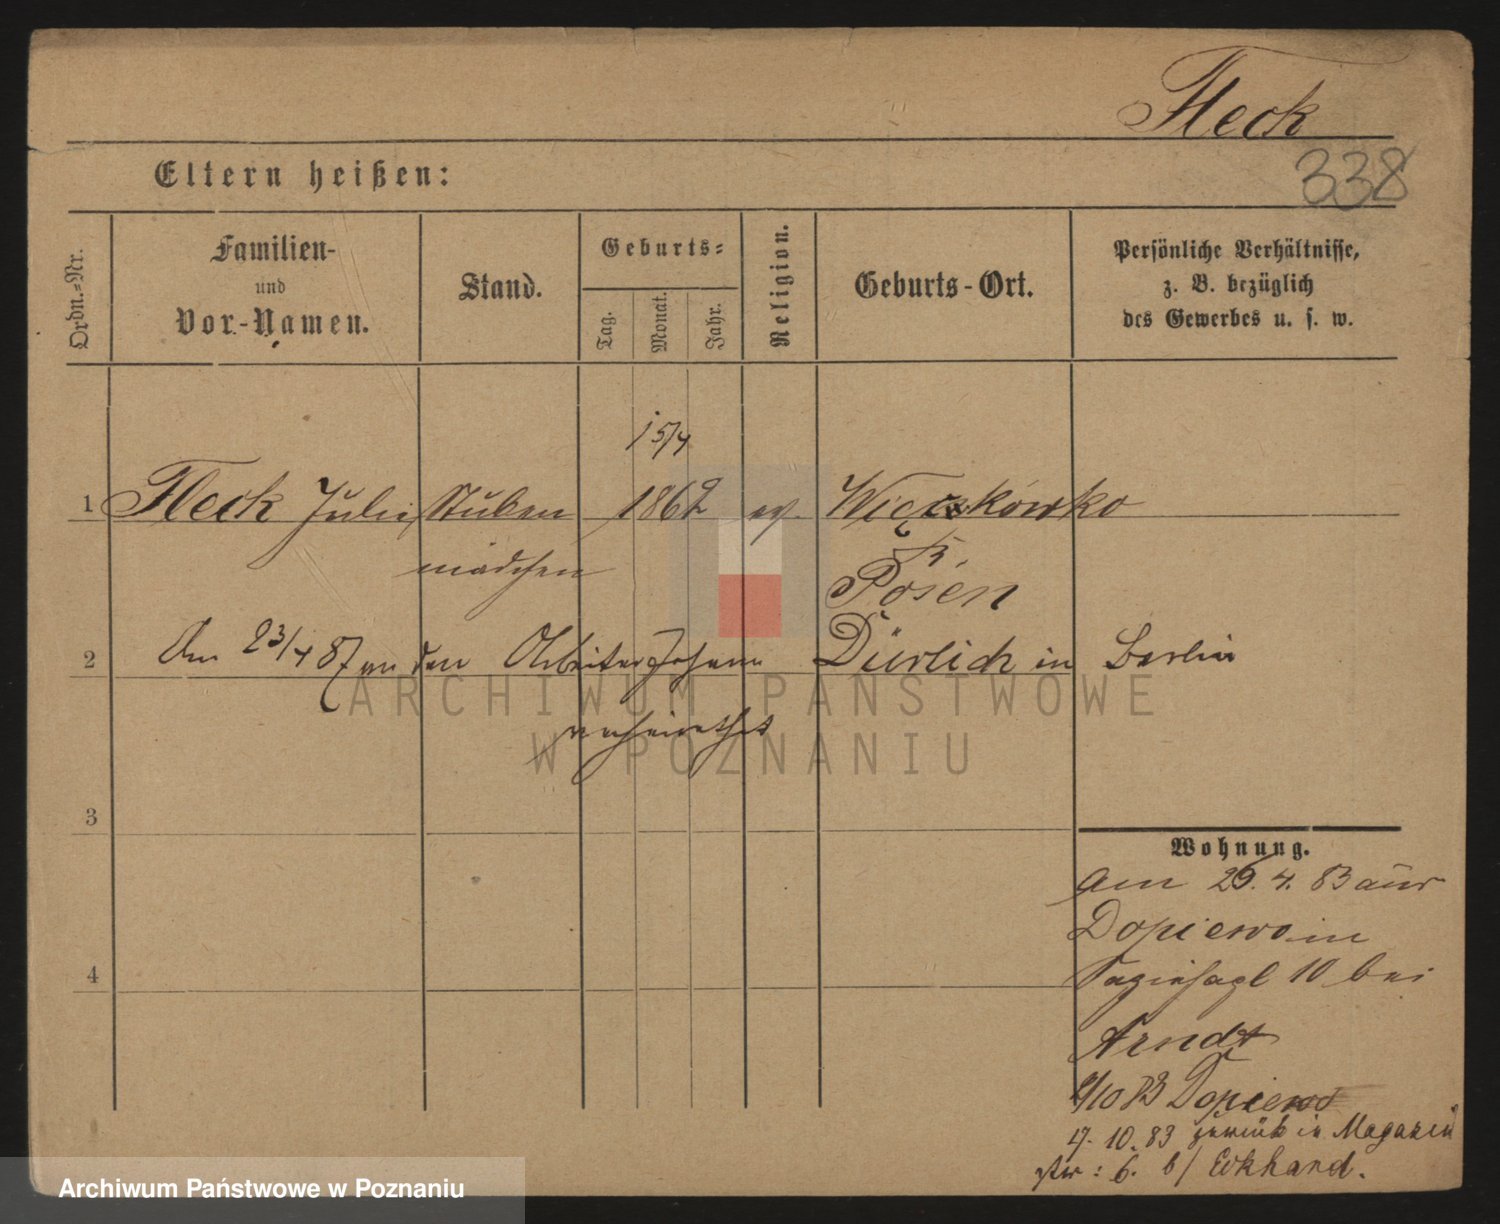 Fleck
338
Eltern heißen:
Ordn.-Nr.
Familien-
und
Vor-Namen.
Stand.
Geburts-
Tag.
Monat.
Jahr.
Religion.
Geburts-Ort.
Persönliche Verhältnisse,
z. B. bezüglich
des Gewerbes u. s. w.
15/4
1 Fleck Julie Stuben 1862 ev.
mädchen
Posen
2 Am 23/4 87 an den Arbeiter Johann Dürlich in Berlin
verheirathet
ARCHIWUM PAŃSTWOWE
W POZNANIU
3
Wohnung.
am 29. 4. 83 aus
Dopiewo in
10 bei
4
Arndt
9/10 83 Dopiewo
17. 10. 83 zurück in Magazin
str: 6. b/ Eckhard.
Archiwum Państwowe w Poznaniu